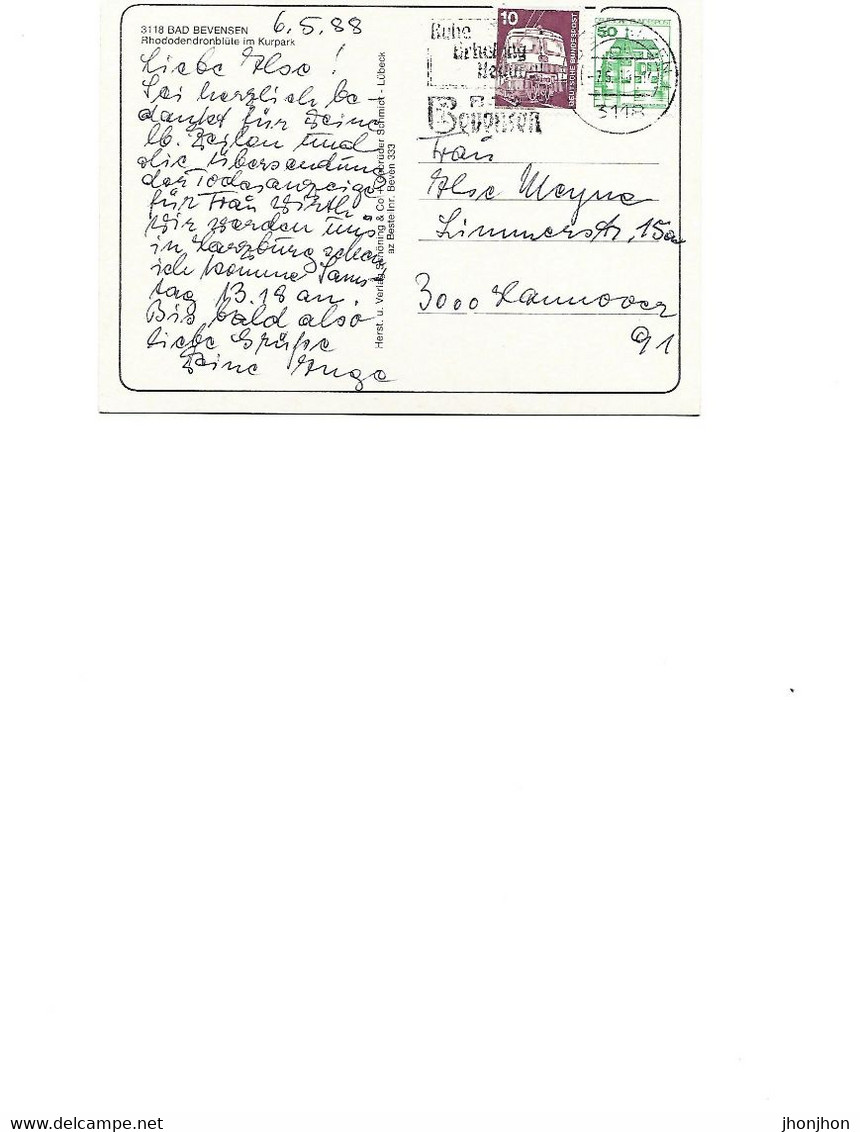 3118 BAD BEVENSEN
Rhododendronblüte im Kurpark
6.5.88
Liebe Ilse!
Sei herzlich be-
dankt für Deine
lb. Zeilen und
die Übersendung
der Todesanzeige
für Frau Wirth
Wir werden uns
in Harzburg sehen
ich komme Sams
tag 13.18 an.
Bis bald also
liebe Grüße
Deine Inge
Herst. u. Verlag Schöning & Co + Gebrüder Schmidt - Lübeck
Bestellnr. Beven 333
Ruhe
Erholung
Bevensen
10
DEUTSCHE BUNDESPOST
50
3118
Frau
Ilse Meyne
Limmerstr. 15a
3000 Hannover
91
delcampe.net
jhonjhon